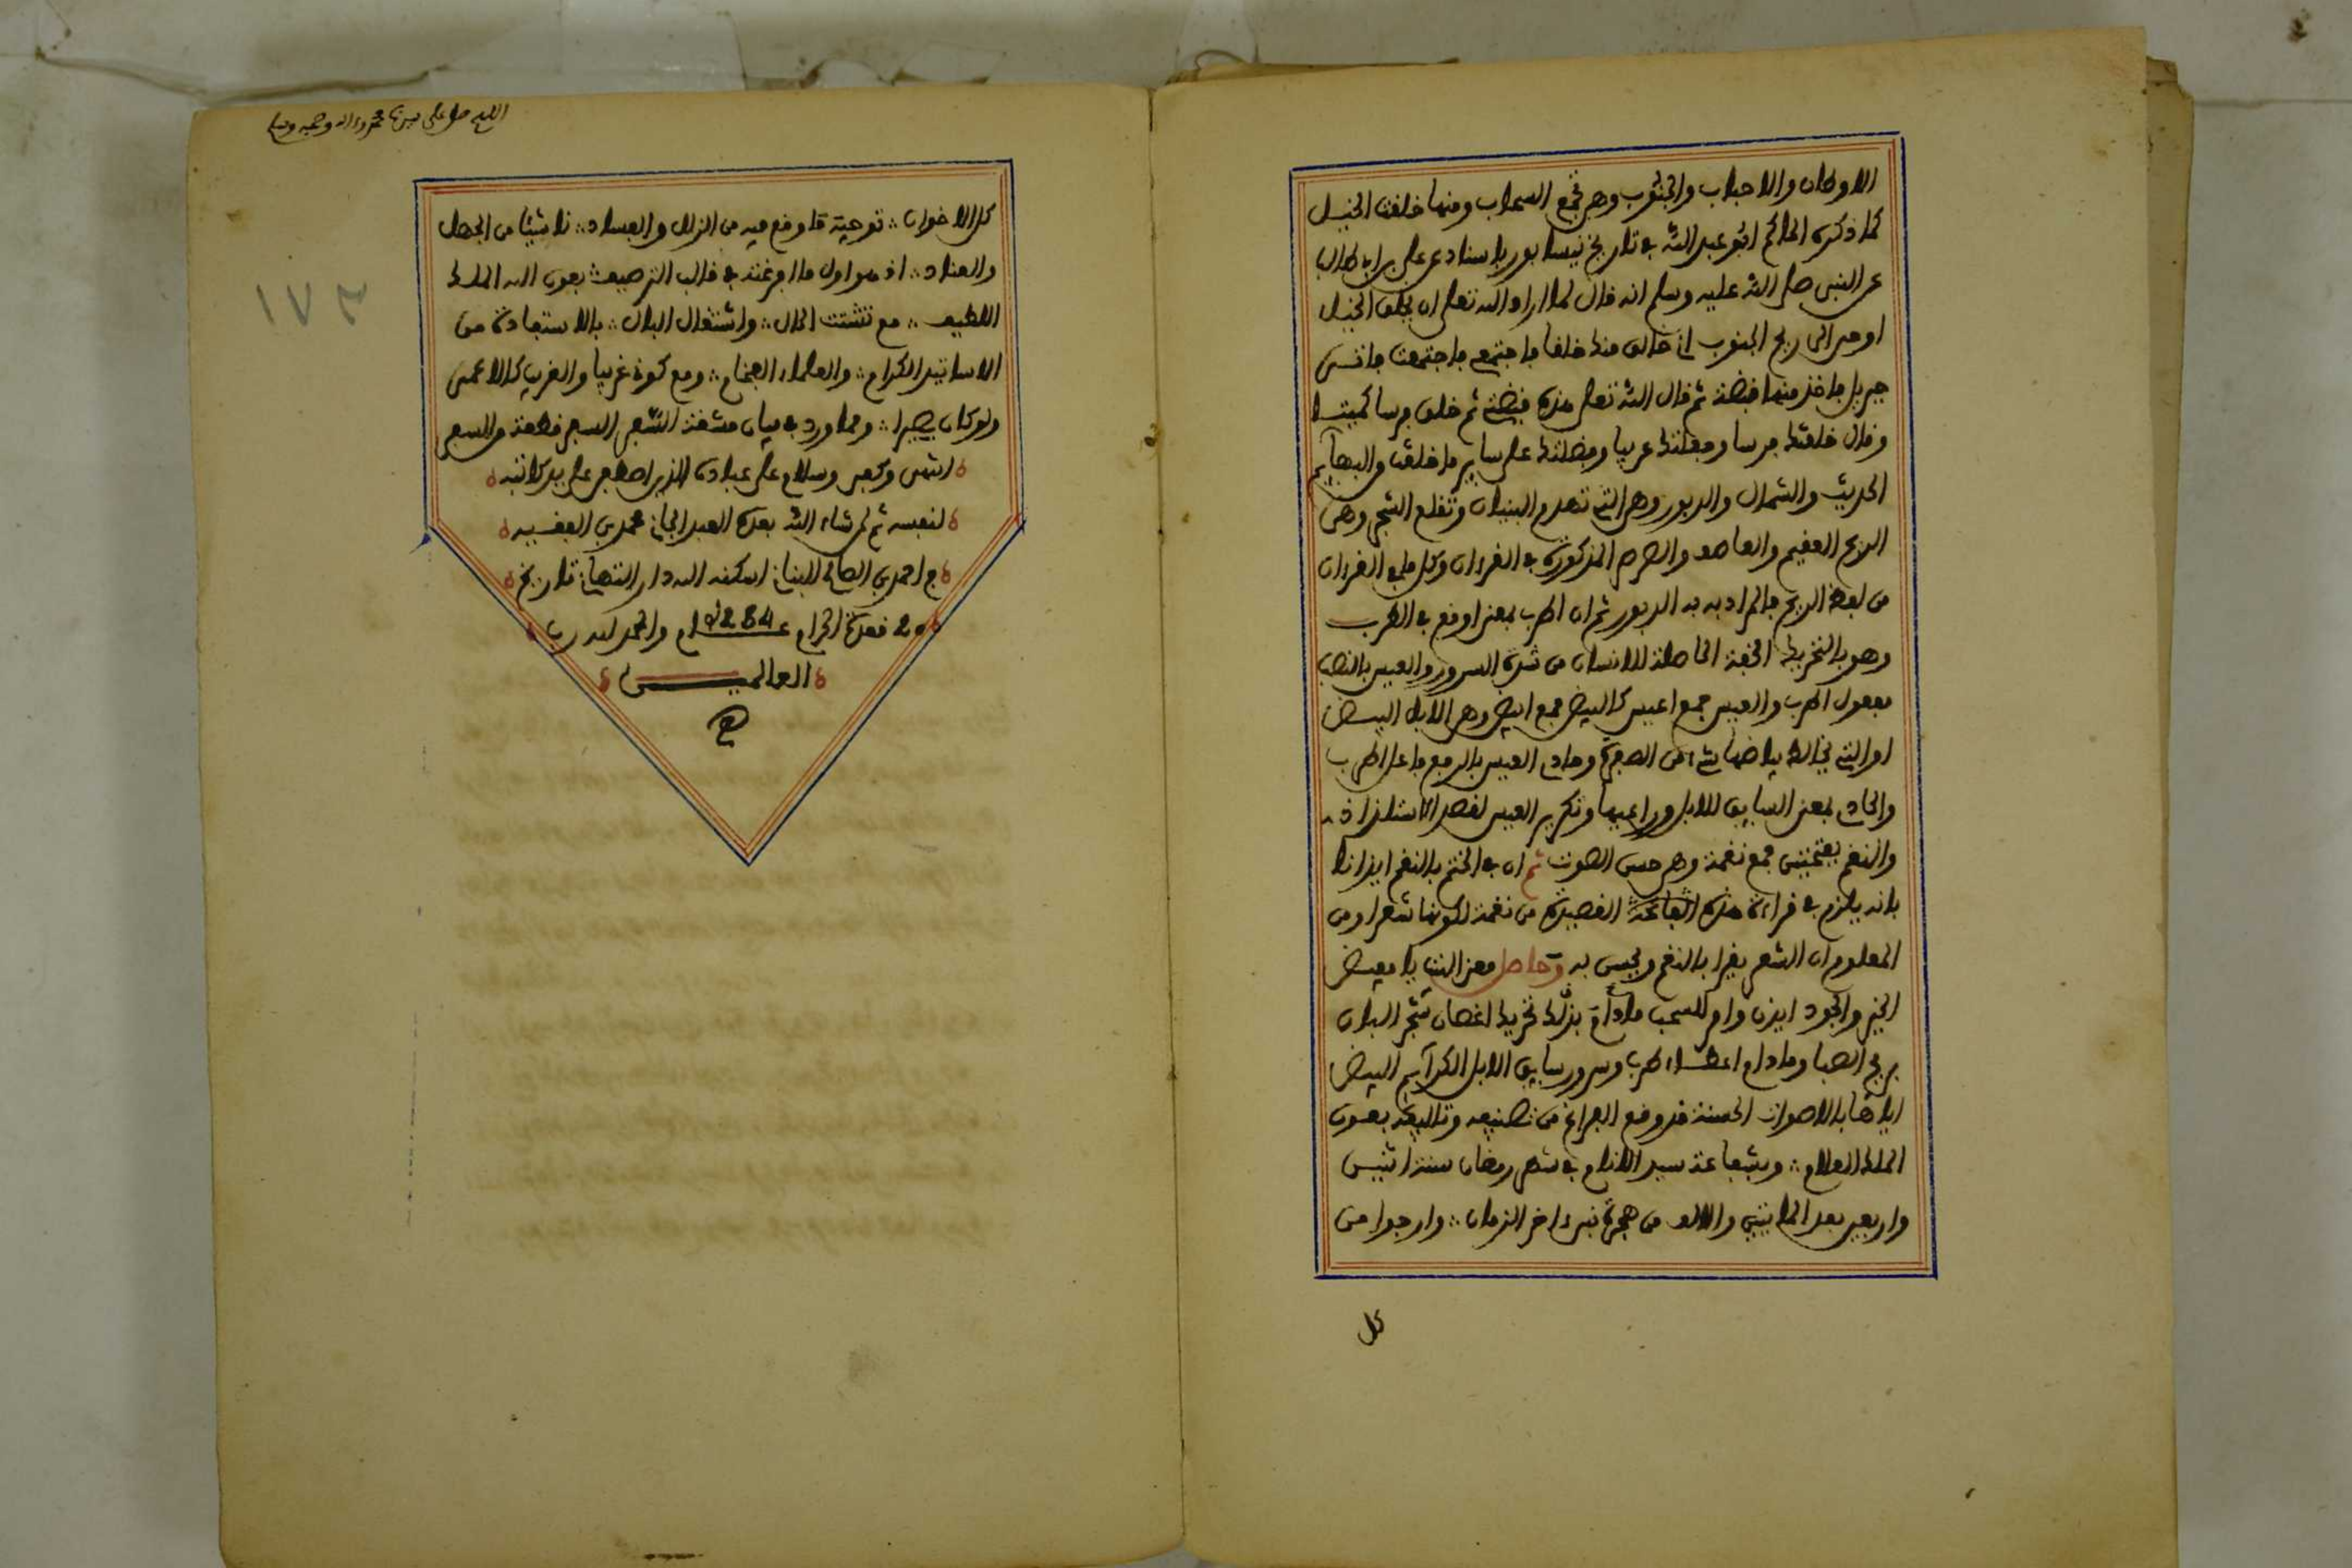 الاوطان والاحباب والجنوب وهي تجمع السحاب ومنها خلقت الخيل
كما ذكره الحاكم ابو عبد الله في تاريخ نيسابور باسناد عن علي بن ابي طالب
عن النبي صلى الله عليه وسلم انه قال لما اراد الله تعلى ان يخلق الخيل
اوحى الى ريح الجنوب اني خالق منك خلقا فاجتمعي فاجتمعت فاتى
جبريل فاخذ منها قبضة ثم قال الله تعلى هذه قبضتي ثم خلق فرسا كميتا
وقال خلقتك فرسا وجعلتك عربيا وفضلتك على ساير ما خلقت من البهايم
الحديث والشمال والدبور وهي التي تهدم البنيان وتقلع الشجر وهي
الريح العقيم والعاصف والصرصر المذكورة في القرءان وكل ما في القرءان
من لفظ الريح فالمراد به الدبور ثم ان اطرب بمعنى اوقع في الطرب
وهو بالتحريك الخفة الحاصلة للانسان من شدة السرور والعيس بالنصب
مفعول اطرب والعيس جمع اعيس كالبيض جمع ابيض وهي الابل البيض
او التي يخالط بياضها شيء من الصفرة وحادي العيس بالرفع فاعل اطرب
والحادي بمعنى السايق للابل وراعيها وتكرير العيس لقصد الاستلذاذ
والنغم بفتحتين جمع نغمة وهي حسن الصوت ثم ان في الختم بالنغم ايذانا
بانه يلزم في قراءة هذه القصيدة من نغمة لكونها شعرا ومن
المعلوم ان الشعر يقرا بالنغم ويحسن به وحاصل معنى البيت يا مفيض
الخير والجود ايذن وامر للسحب مادام بذلك تحريك اغصان شجر البان
بريح الصبا ومادام اعطاء طرب وسرور سايق الابل الكرايم البيض
اياها بالاصوات الحسنة قد وقع الفراغ من تصنيفه وتاليفه بعون
الملك العلام ؞ وبشفاعة سيد الانام في شهر رمضان سنة اثنين
واربعين بعد المايتين والالف من هجرة نبي ءاخر الزمان ؞ وارجوا من
كل
اللهم صل على سيدنا محمد وءاله وصحبه وسلم
١٧٣
كل الاخوان ؞ توجيه ما وقع فيه من الزلل والفساد ؞ ناشيئا من الجهل
والعناد ؞ اذ هو اول ما افرغته في قالب الترصيف ؞ بعون الله الملك
اللطيف ؞ مع تشتت الحال ؞ واشتغال البال ؞ بالاستفادة من
الاساتيد الكرام ؞ والعلماء الفخام ؞ ومع كونه غريبا والغريب كالاعمى
ولو كان بصيرا ؞ ومما ورد في بيان مشقة السفر السفر قطعة من السقر
انتهى وكفى وسلام على عباده الذين اصطفى على يد كاتبه
لنفسه ثم لمن شاء الله بعده العبد الجاني محمد بن الفقيه
ح احمد بن الصالح البناني اسكنه الله دار التهاني تاريخ
20 قعدة الحرام عام 1284 والحمد لله رب
العالمين